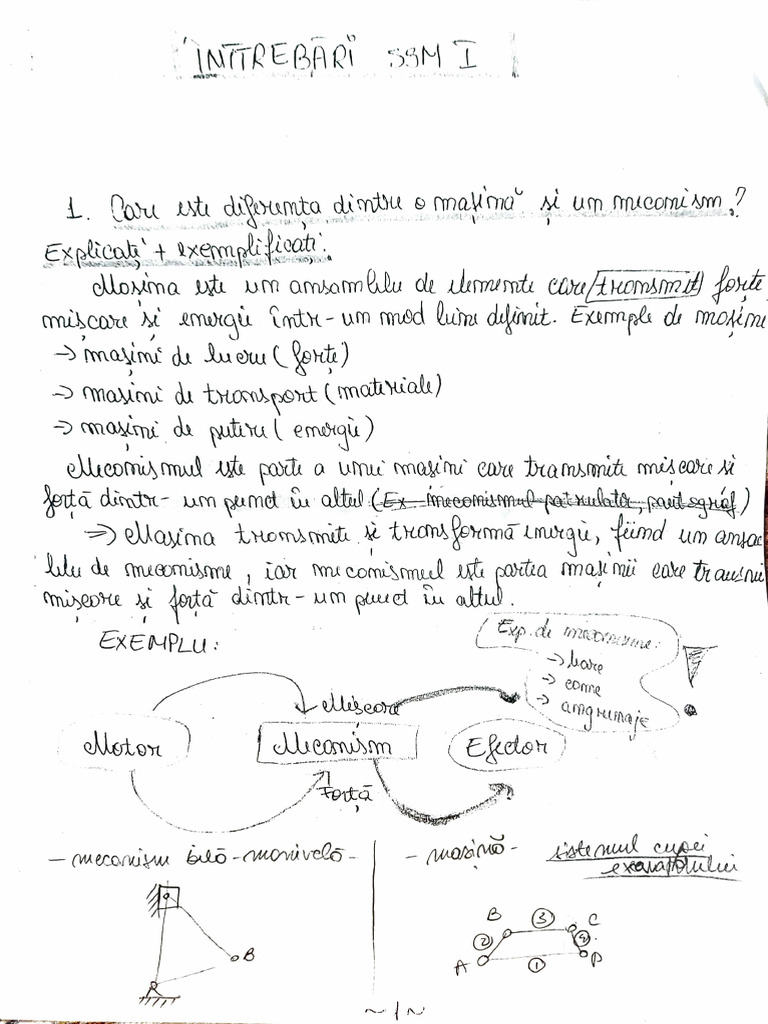 ÎNTREBĂRI SSM I
1. Care este diferența dintre o mașină și un mecanism?
Explicați + exemplificați.
Mașina este un ansamblu de elemente care transmit forțe,
mișcare și energie într-un mod bine definit. Exemple de mașini
-> mașini de lucru (forțe)
-> mașini de transport (materiale)
-> mașini de putere (energie)
Mecanismul este parte a unei mașini care transmite mișcare si
forță dintr-un punct în altul (Ex mecanismul patrulater, pantograf)
=> Mașina transmite și transformă energie, fiind un ansam
blu de mecanisme, iar mecanismul este partea mașinii care transmi
mișcare și forță dintr-un punct în altul.
EXEMPLU:
Exp. de mecanisme:
-> bare
-> came
-> angrenaje
Mișcare
Motor Mecanism Efector
Forță
- mecanism bielă-manivelă -
- mașină - sistemul cupei
excavatorului
B
B 3 C
2 4
A 1 D
~1~